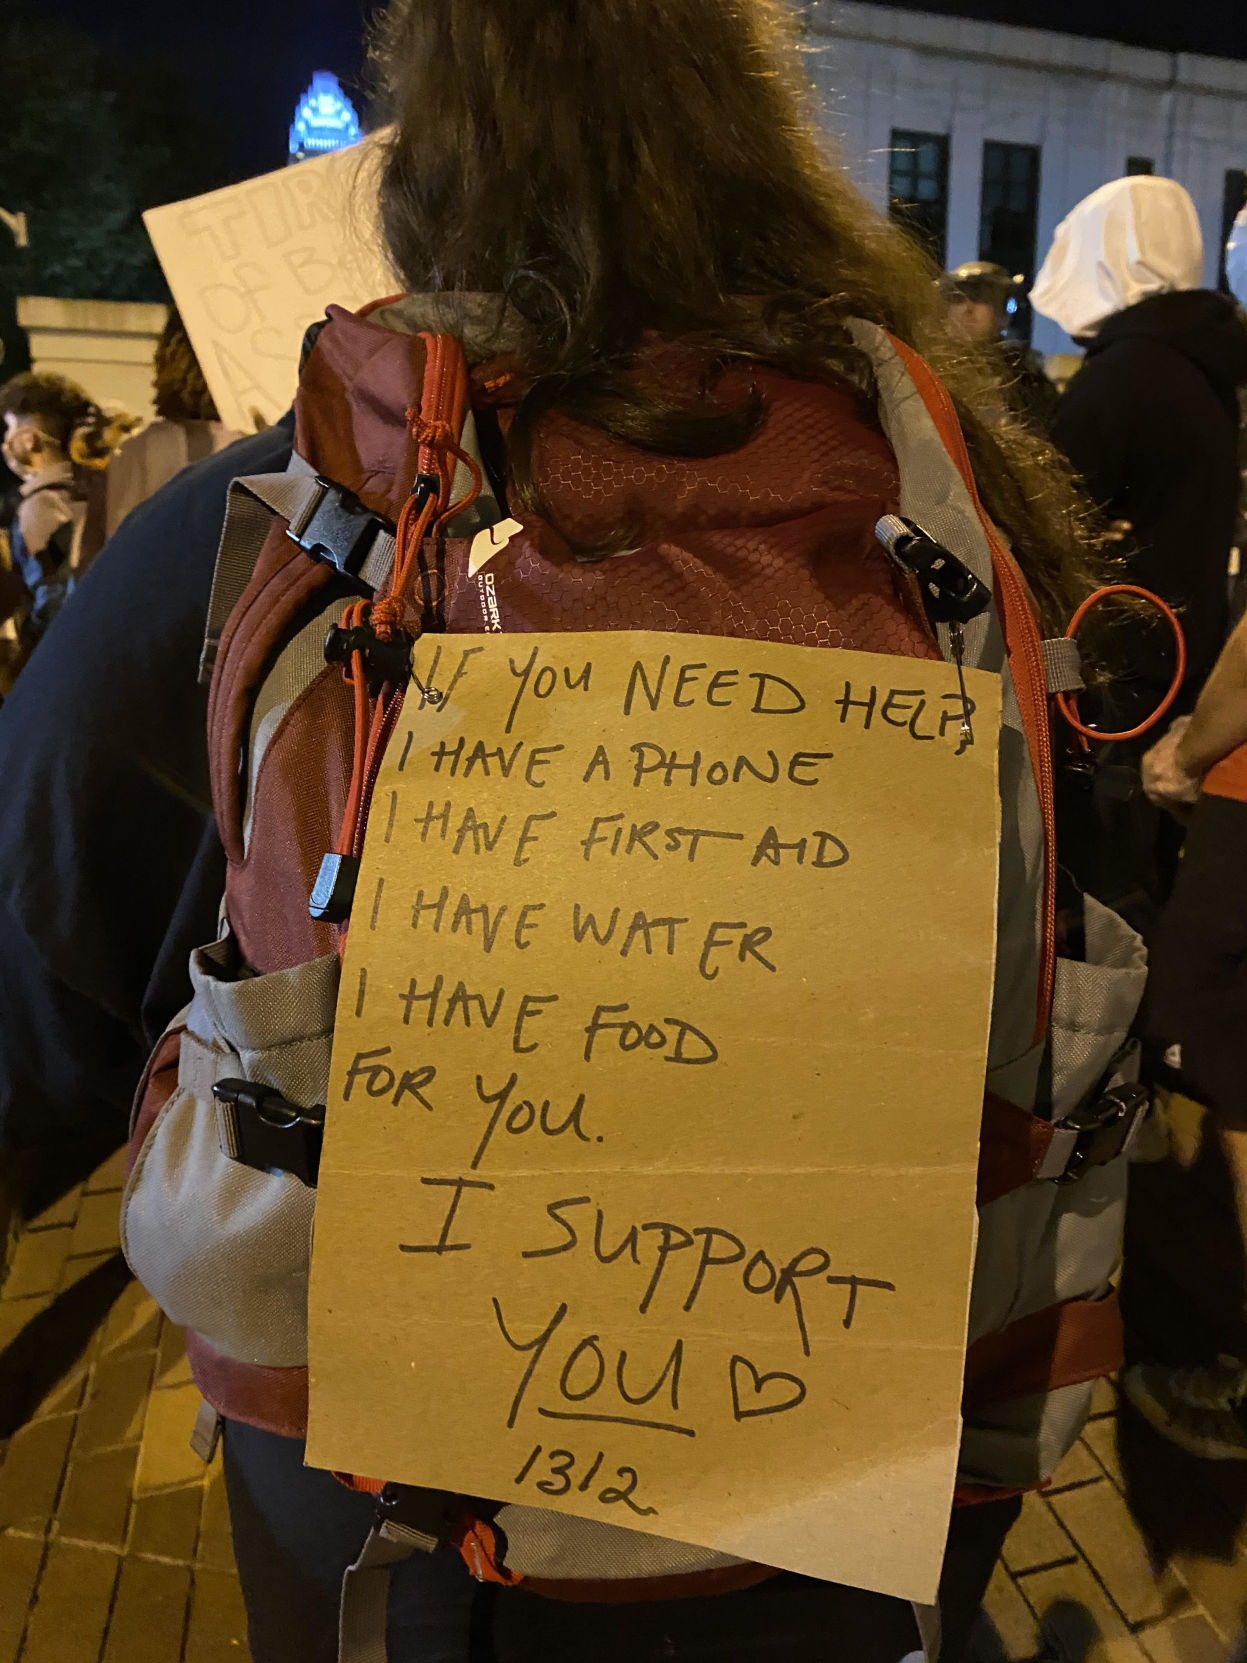 TIRE
OF BE
AS
OZARK
IF YOU NEED HELP,
I HAVE A PHONE
I HAVE FIRST AID
I HAVE WATER
I HAVE FOOD
FOR YOU.
I SUPPORT
YOU ♡
1312